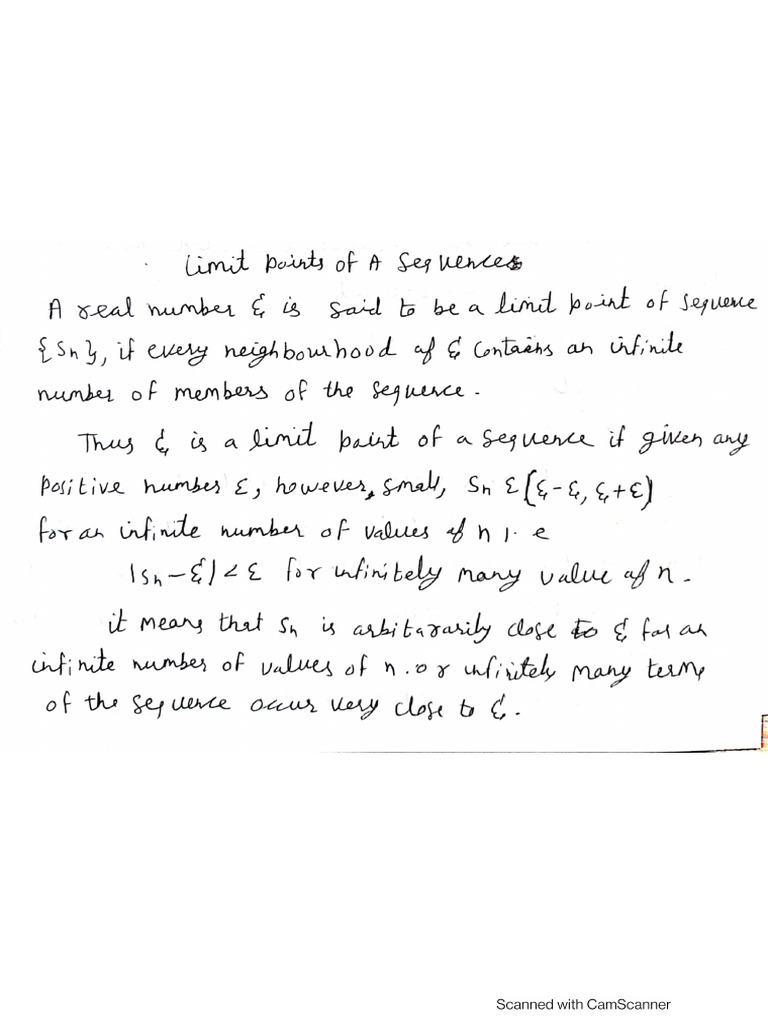 Limit points of A Sequences
A real number ξ is said to be a limit point of sequence
{Sn}, if every neighbourhood of ξ contains an infinite
number of members of the sequence.
Thus ξ is a limit point of a sequence if given any
positive number ε, however, small, Sn ε (ξ-ε, ξ+ε)
for an infinite number of values of n i.e
|Sn-ξ| < ε for infinitely many value of n.
it means that Sn is arbitararily close to ξ for an
infinite number of values of n. or infinitely many terms
of the sequence occur very close to ξ.
Scanned with CamScanner